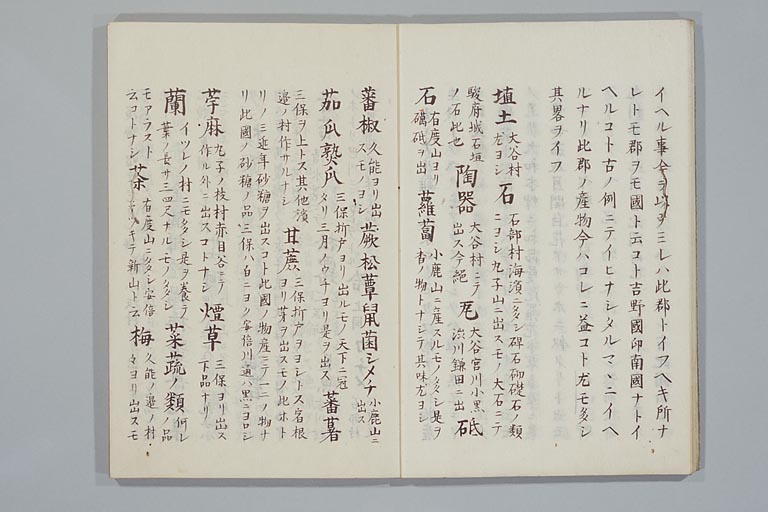 イヘル事今ヲ以テミレハ此郡トイフヘキ所ナ
レトモ郡ヲモ國ト云コト吉野國印南國ナトイ
ヘルコト古ノ例ニテイヒナシタルマヽニイヘ
ルナリ此郡ノ産物今ハコレニ益コト尤モ多シ
其畧ヲイフ
埴土 大谷村尤ヨシ 石 石部村海濱ニ多シ碑石砌礎石ノ類ニヨシ九子山ニ出スモノ大石ニテ
駿府城石垣ノ石此也 陶器 大谷村ニテ出ス今絶 瓦 大谷宮川小黒渋川鎌田ニ出 砥
石 有度山ヨリ礪砥ヲ出 蘿蔔 小鹿山ニ産スルモノ多シ是ヲ香ノ物トナシテ其味尤ヨシ
蕃椒 久能ヨリ出スモノヨシ 蕨松蕈鼠菌シメチ 小鹿山ニ出ス
茄瓜熟瓜 三保折戸ヨリ出ルモノ天下ニ冠タリ三月ノウチヨリ是ヲ出ス 蕃薯
三保ヲ上トス其他濱邉ノ村作サルナシ 甘蔗 三保折戸ヲヨシトス宿根ヨリ芽ヲ出スモノ此ホト
リノ三近年砂糖ヲ出スコト此國ノ物産ニテ一ニノ物ナリ此國ノ砂糖ノ品三保ハ白ニヨク安倍川通ハ黒ニヨロシ
苧麻 九子ノ枝村赤目谷ニテ作ル外ニ出スコトナシ 煙草 三保ヨリ出ス下品ナリ
蘭 イツレノ村ニモ多シ是ヲ養テ葉ノ長サ三四尺ナルモノ多シ 菜蔬ノ類 何レノ品
モアラスト云コトナシ 茶 有度山ニ多シ安倍ニツキテ新山ト云 梅 久能ノ邉ノ村々ヨリ出スモ